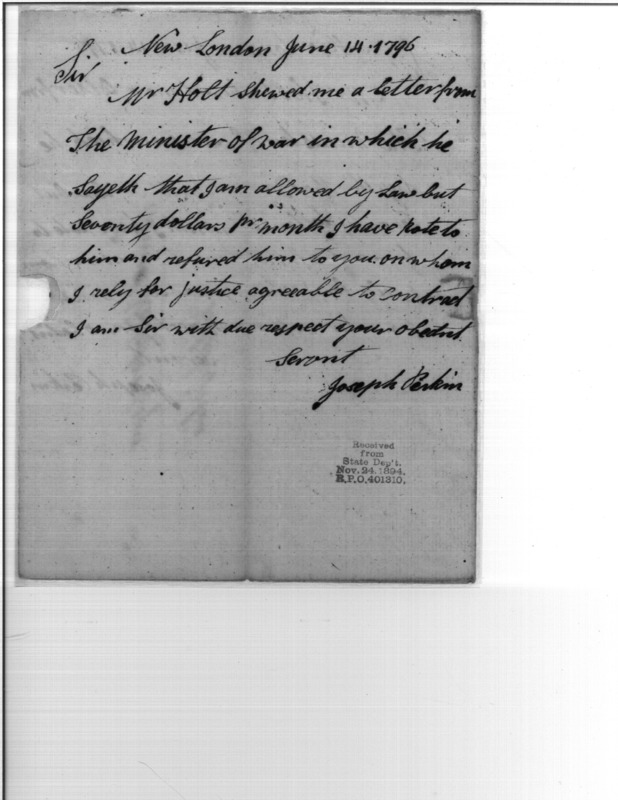 New London June 14 1796
Sir
Mr Holt shewed me a letter from
The minister of war in which he
Sayeth that I am allowed by Law but
Seventy dollars pr month I have rote to
him and refured him to you on whom
I rely for justice agreeable to Contract
I am Sir with due respect your obednt
Servnt
Joseph Perkin
Received
from
State Dep't.
Nov. 24. 1894.
R.P.O. 401310.